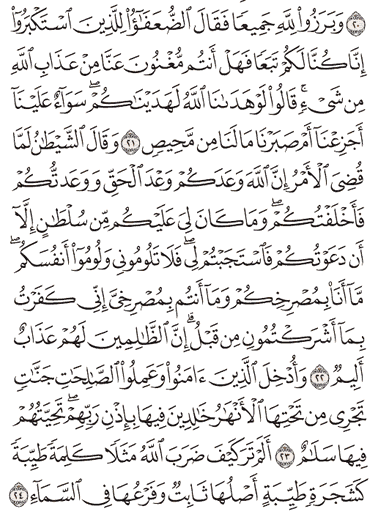 ۝٢٠ وَبَرَزُوا۟ لِلَّهِ جَمِيعًا فَقَالَ ٱلضُّعَفَـٰٓؤُا۟ لِلَّذِينَ ٱسْتَكْبَرُوٓا۟
إِنَّا كُنَّا لَكُمْ تَبَعًا فَهَلْ أَنتُم مُّغْنُونَ عَنَّا مِنْ عَذَابِ ٱللَّهِ
مِن شَىْءٍ ۚ قَالُوا۟ لَوْ هَدَىٰنَا ٱللَّهُ لَهَدَيْنَـٰكُمْ ۖ سَوَآءٌ عَلَيْنَآ
أَجَزِعْنَآ أَمْ صَبَرْنَا مَا لَنَا مِن مَّحِيصٍ ۝٢١ وَقَالَ ٱلشَّيْطَـٰنُ لَمَّا
قُضِىَ ٱلْأَمْرُ إِنَّ ٱللَّهَ وَعَدَكُمْ وَعْدَ ٱلْحَقِّ وَوَعَدتُّكُمْ
فَأَخْلَفْتُكُمْ ۖ وَمَا كَانَ لِىَ عَلَيْكُم مِّن سُلْطَـٰنٍ إِلَّآ
أَن دَعَوْتُكُمْ فَٱسْتَجَبْتُمْ لِى ۖ فَلَا تَلُومُونِى وَلُومُوٓا۟ أَنفُسَكُم ۖ
مَّآ أَنَا۠ بِمُصْرِخِكُمْ وَمَآ أَنتُم بِمُصْرِخِىَّ ۖ إِنِّى كَفَرْتُ
بِمَآ أَشْرَكْتُمُونِ مِن قَبْلُ ۗ إِنَّ ٱلظَّـٰلِمِينَ لَهُمْ عَذَابٌ
أَلِيمٌ ۝٢٢ وَأُدْخِلَ ٱلَّذِينَ ءَامَنُوا۟ وَعَمِلُوا۟ ٱلصَّـٰلِحَـٰتِ جَنَّـٰتٍ
تَجْرِى مِن تَحْتِهَا ٱلْأَنْهَـٰرُ خَـٰلِدِينَ فِيهَا بِإِذْنِ رَبِّهِمْ ۖ تَحِيَّتُهُمْ
فِيهَا سَلَـٰمٌ ۝٢٣ أَلَمْ تَرَ كَيْفَ ضَرَبَ ٱللَّهُ مَثَلًا كَلِمَةً طَيِّبَةً
كَشَجَرَةٍ طَيِّبَةٍ أَصْلُهَا ثَابِتٌ وَفَرْعُهَا فِى ٱلسَّمَآءِ ۝٢٤